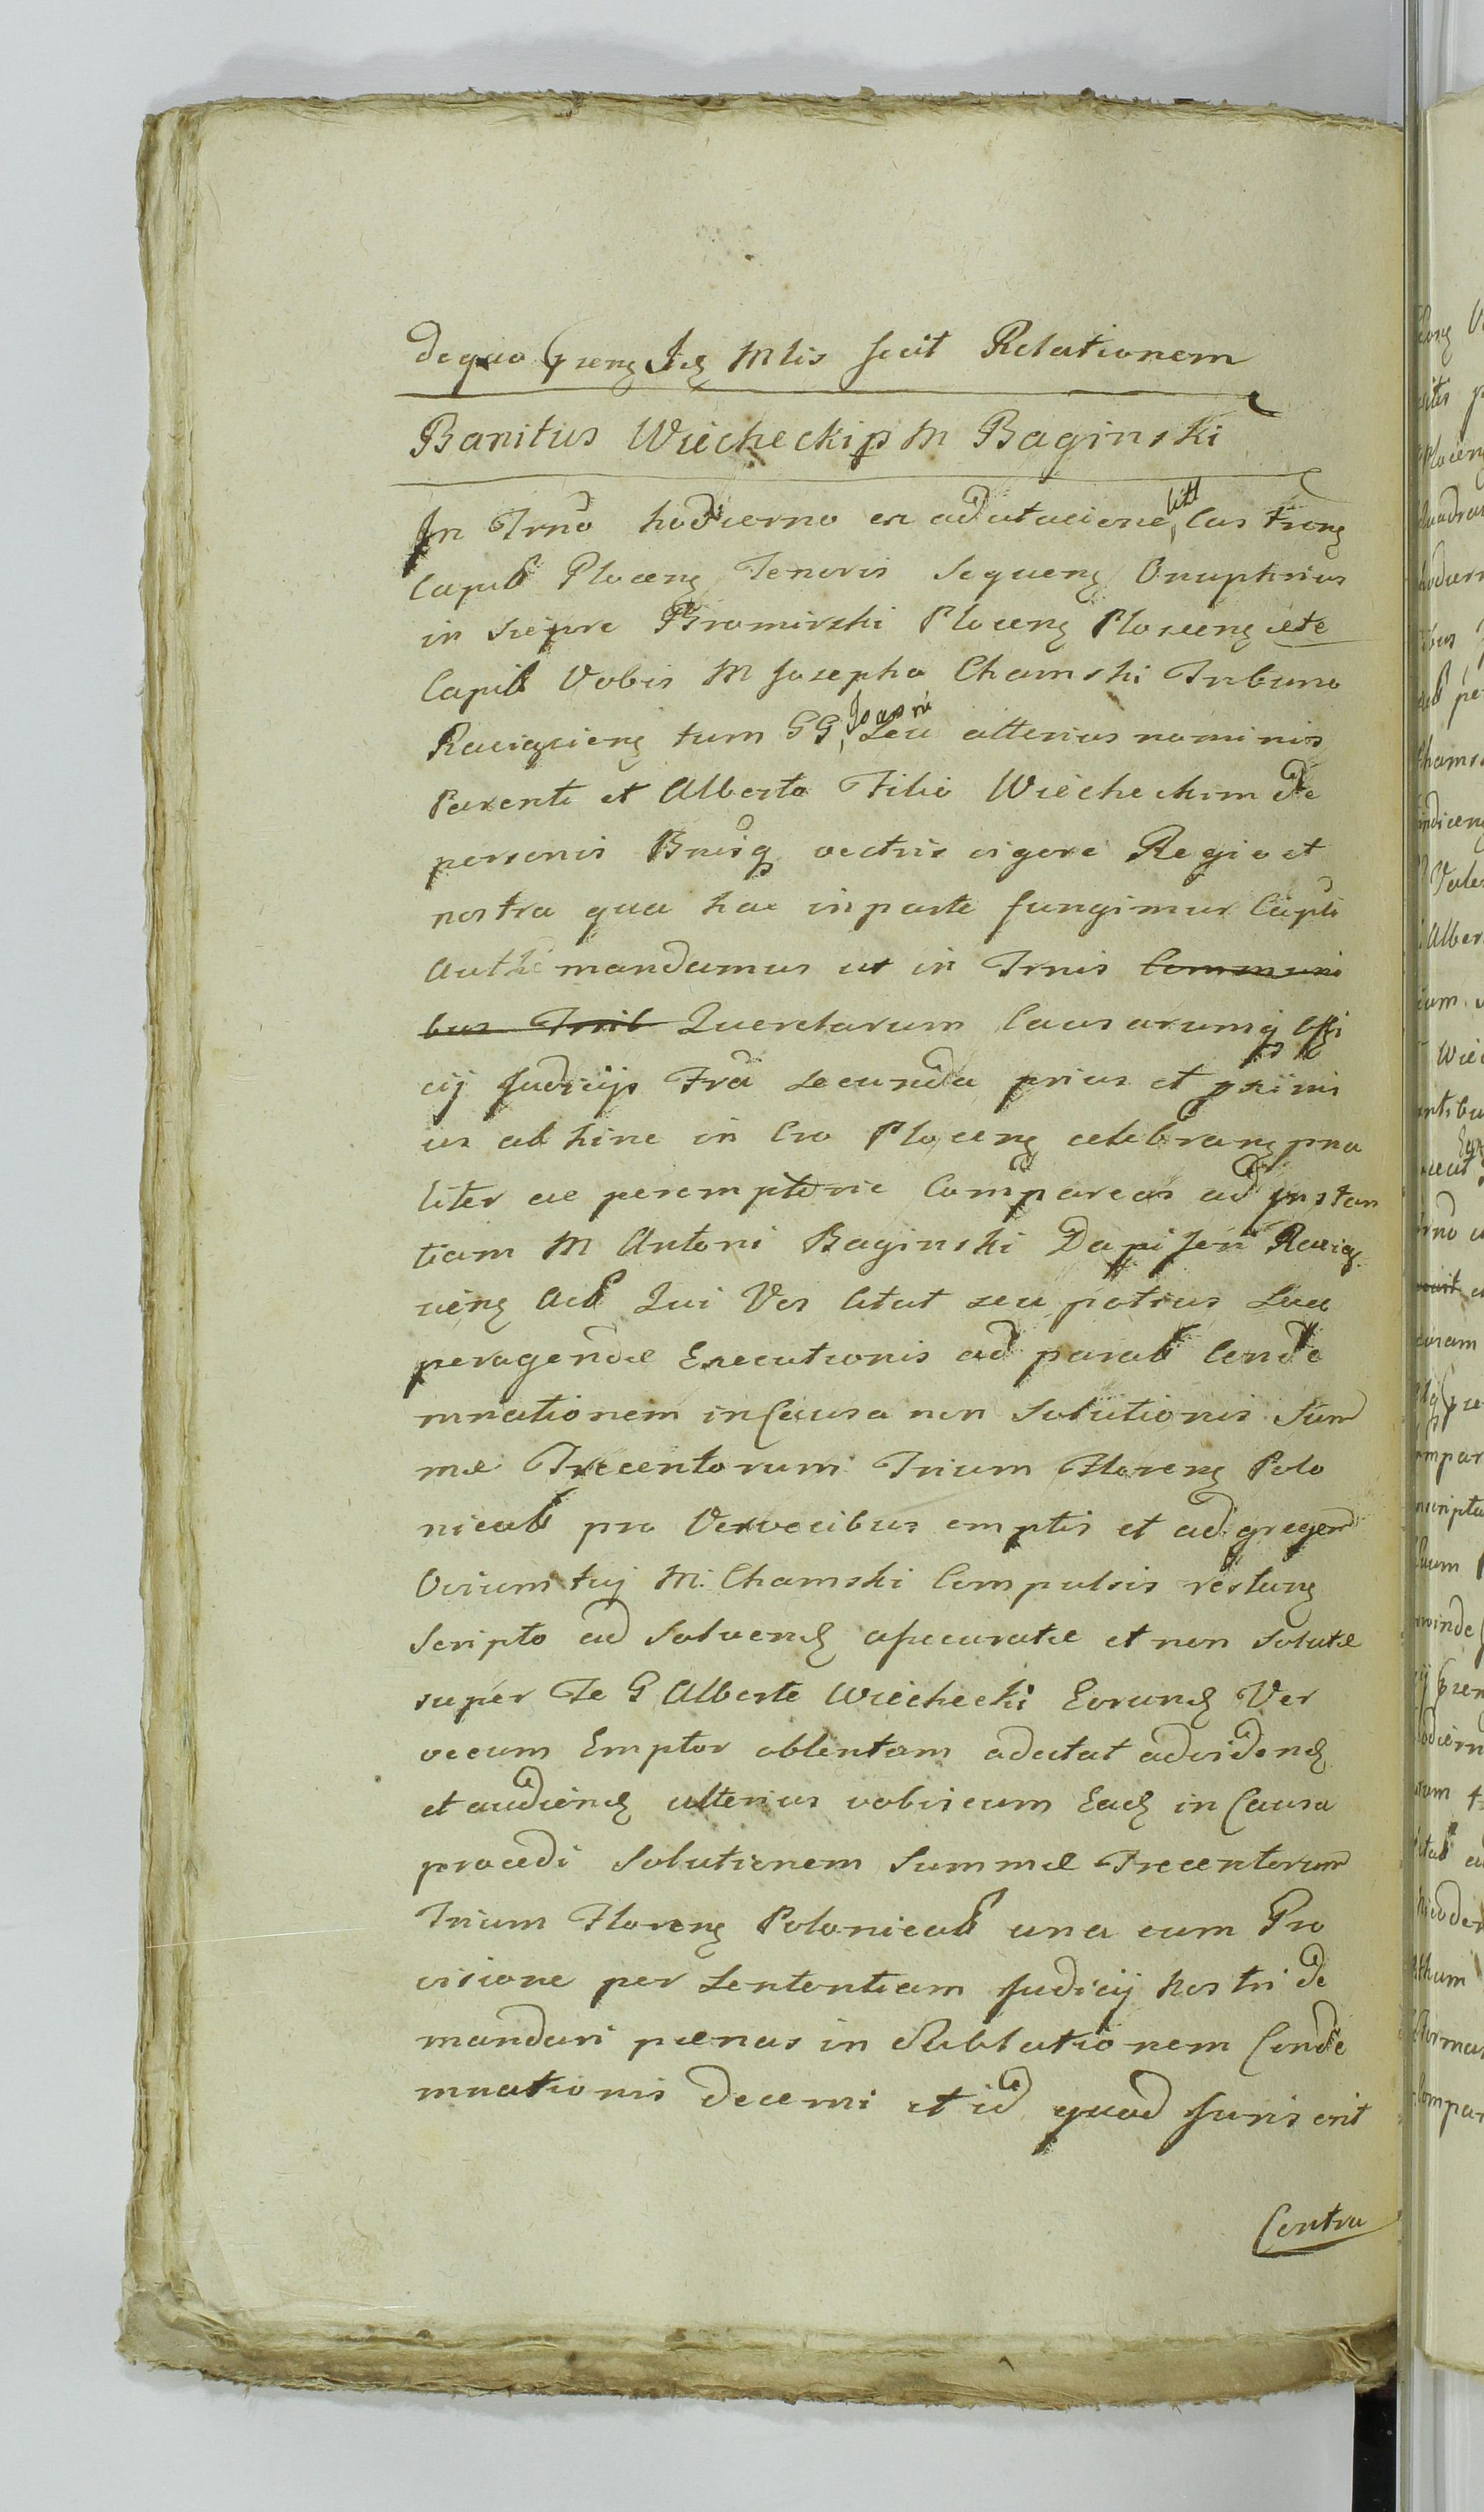 de quo Gnens Ids Mlis fecit Relationem
Banitus Wiecheckip M Baginski
In Trno hodierno ex adcitacione litt Castrens
Capit Plocens Tenoris Sequens Onuphrius
in Sciepre Bromirski Plocens Plocens ete
Capit Vobis M Josepho Chamski Tribuno
Raviguiens tum GG Joanni Seu alterius nominis
Parenti et Alberto Filio Wiecheckim de
personis Bnisq vectris vigore Regia et
nostra qua hac in parte fungimur Capti
Authe mandamus ut in Trnis Communi
bus Tnib Querelarum Causarumq Offi
cij Judicijs Fra Secunda prius et primi
us abhinc in Cro Plocens celebrans pna
liter ac peremptorie Compareas ad Instan
tiam M Antoni Baginski Dapiferi Ravig
uens Act Qui Vos Citat seu potius Luci
peragendæ Executionis ad parat Conde
mnationem in Causa non Solutionis Sum
mæ Trecentorum Trium Florens Polo
nicat pro Vervecibus emptis et ad gregem
Ovium tuj M. Chamski Compulsis restans
Scripto ad Solvend assecuratæ et non Solutæ
super Te G Alberte Wiechecki Eorund Ver
vecum Emptor obtentam adcitat advidend
et audiend ulterius vobiscum Ead in Causa
procedi Solutionem Summæ Trecentorum
Trium Florens Polonicat una cum Pro
visione per Sententiam Judicij Nostri de
mandari pænas in Sublationem Conde
mnationis decerni et id quod Juris erit
Contra